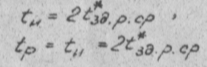 tц = 2t*зд.р.ср ,
tр = tц = 2t*зд.р.ср